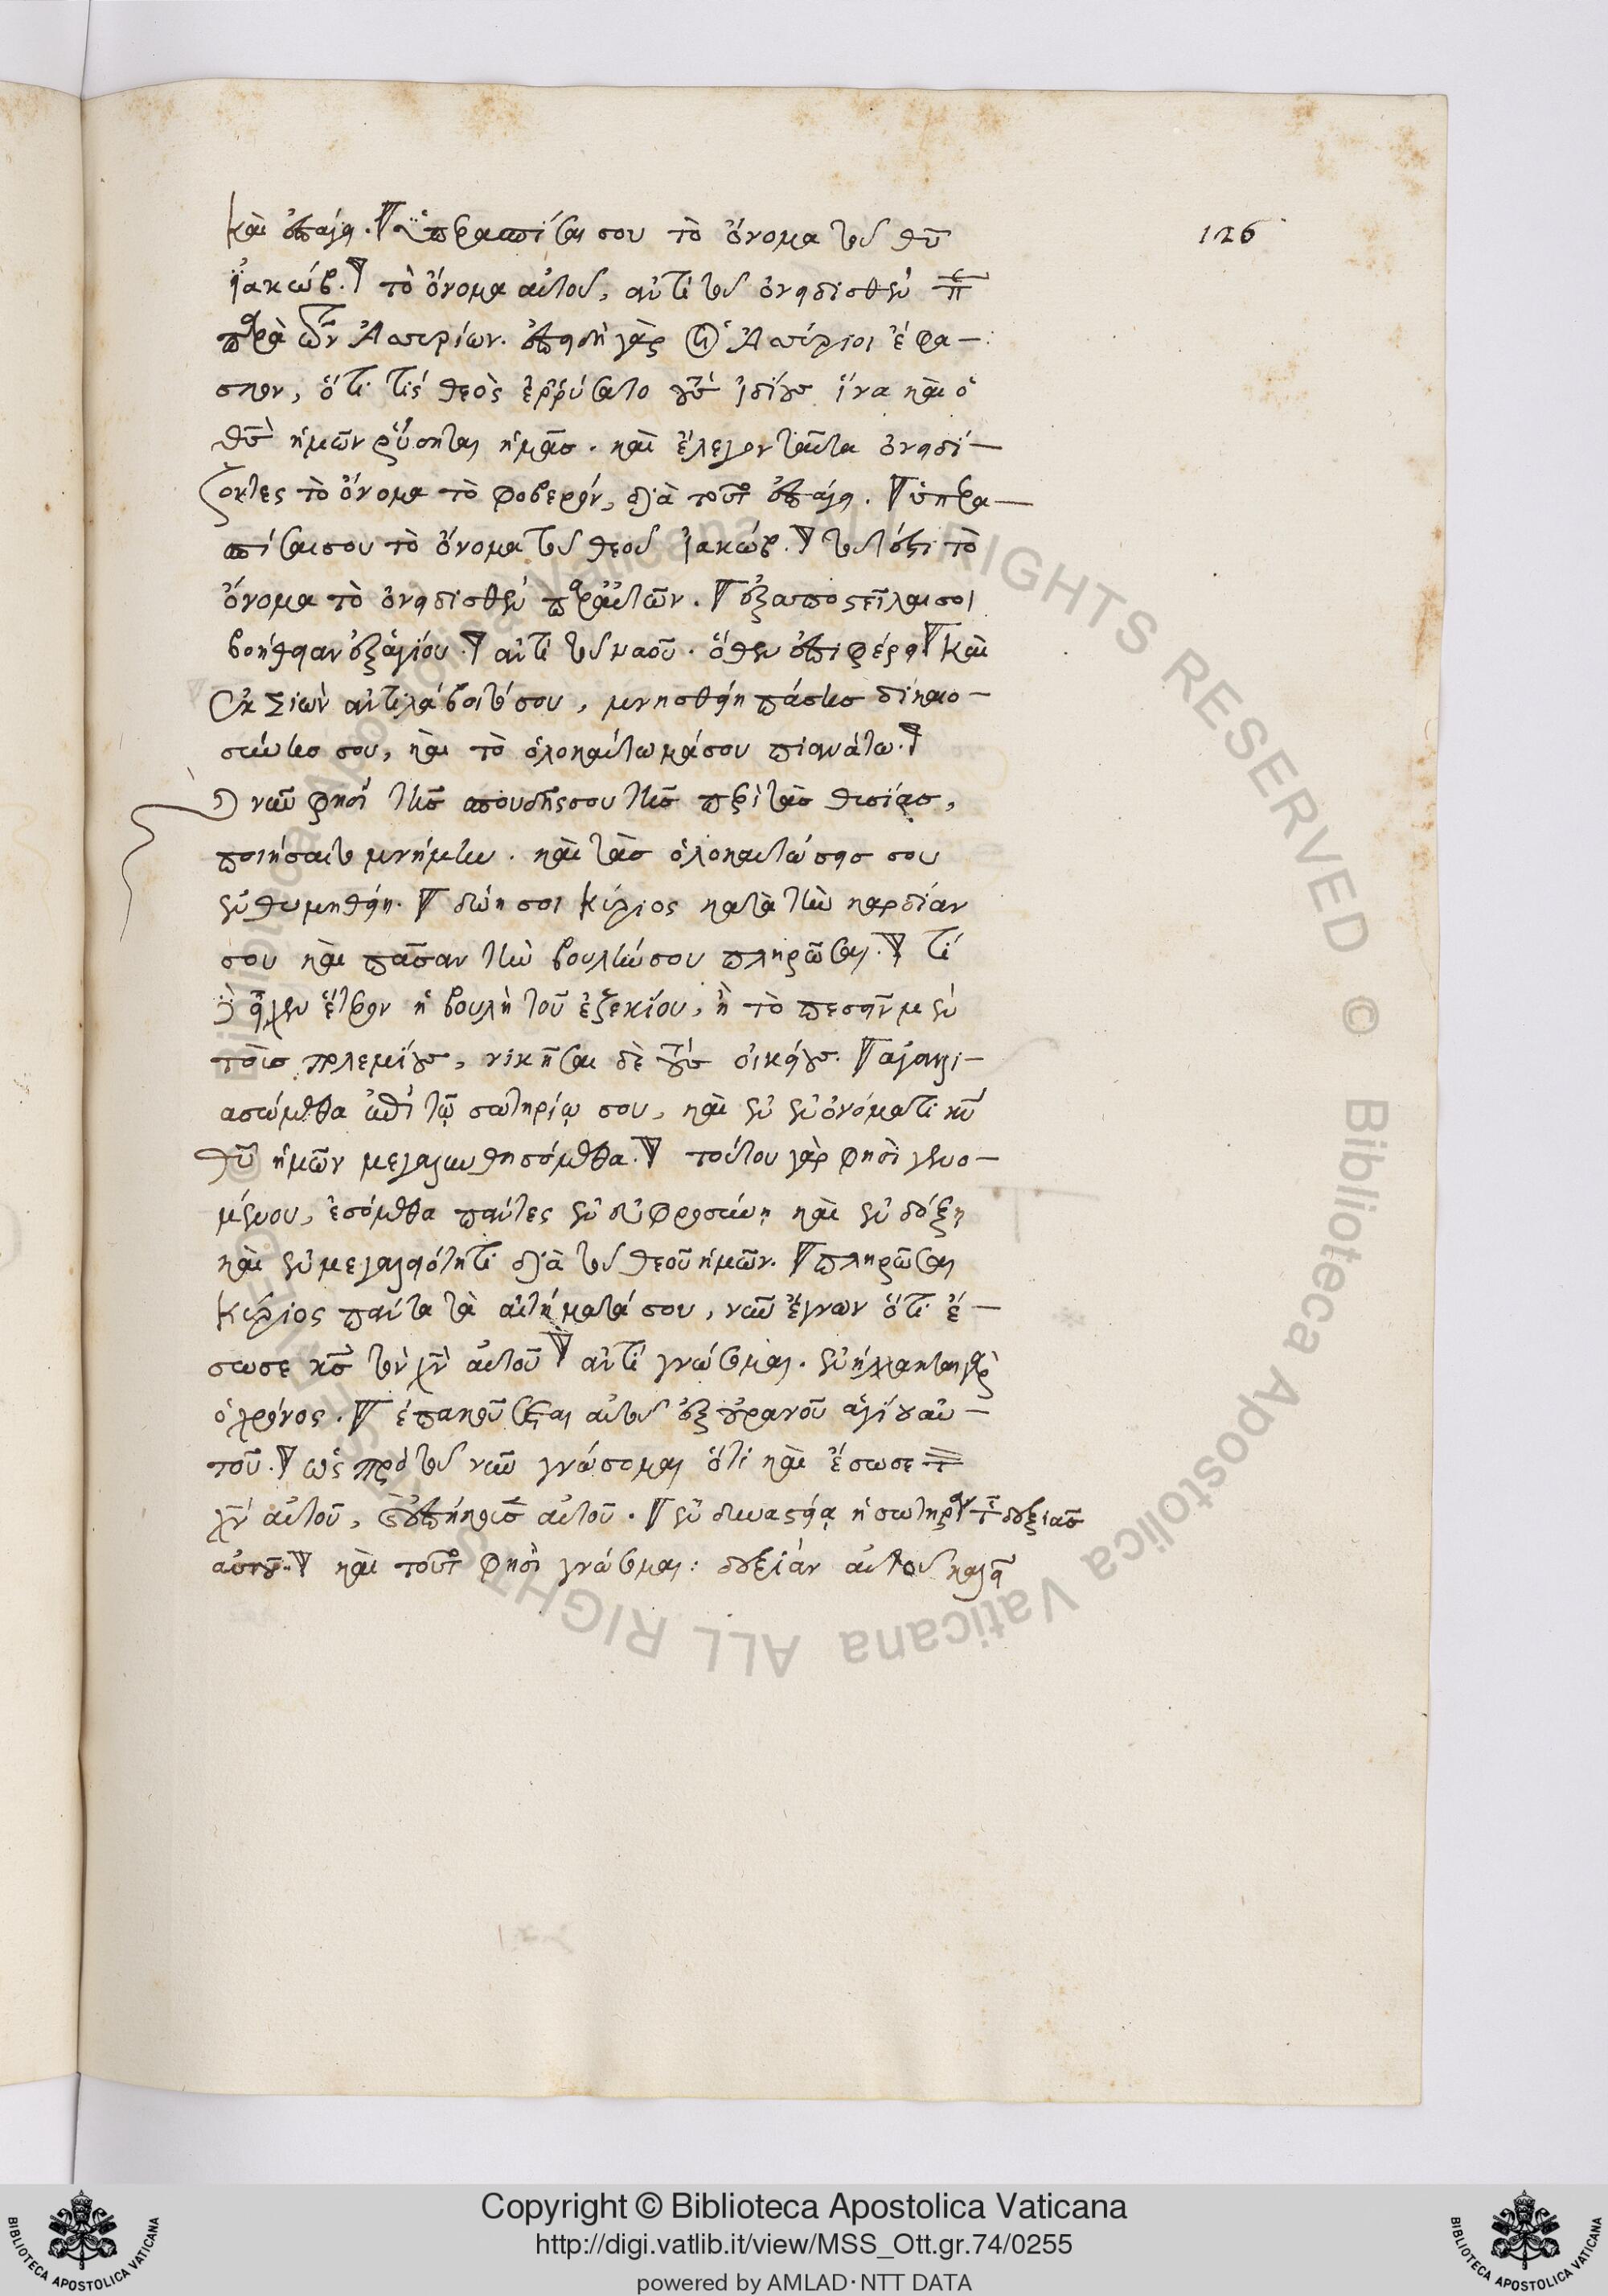 καὶ ἐπάγει. ὑπερασπίσαι σου τὸ ὄνομα τοῦ θυ̅
ἰακώβ. τὸ ὄνομα αὐτοῦ, ἀντὶ τοῦ ὀνειδισθὲν
παρὰ τῶν Ἀσσυρίων. ἐπειδὴ γὰρ οἱ Ἀσσύριοι ἔφα-
σκον, ὅτι τίς θεὸς ἐρρύσατο τοὺς ἰδίους ἵνα καὶ ὁ
θς̅ ἡμῶν ῥύσηται ἡμᾶς. καὶ ἔλεγον ταῦτα ὀνειδί-
ζοντες τὸ ὄνομα τὸ φοβερόν, διὰ τοῦτο ἐπάγει. ὑπερα-
σπίσαι σου τὸ ὄνομα τοῦ θεοῦ ἰακώβ. τουτέστι τὸ
ὄνομα τὸ ὀνειδισθὲν παρ' αὐτῶν. ἐξαποστείλαι σοι
βοήθειαν ἐξ ἁγίου. ἀντὶ τοῦ ναοῦ. ὅθεν ἐπιφέρει καὶ
ἐκ Σιὼν ἀντιλάβοιτό σου, μνησθείη πάσης δικαιο-
σύνης σου, καὶ τὸ ὁλοκαύτωμά σου πιανάτω.
νῦν φησὶ τῆς σπουδῆς σου τῆς περὶ τὰς θυσίας,
ποιήσαιτο μνήμην. καὶ τὰς ὁλοκαυτώσεις σου
ἐνθυμηθείη. δώη σοι κύριος κατὰ τὴν καρδίαν
σου καὶ πᾶσαν τὴν βουλήν σου πληρώσαι. τί
δὲ εἶχεν ἕτερον ἡ βουλὴ τοῦ ἐζεκίου, ἢ τὸ πεσεῖν μὲν
τοὺς πολεμίους, νικῆσαι δὲ τοὺς οἰκείους. ἀγαλλι-
ασώμεθα ἐπὶ τῷ σωτηρίῳ σου, καὶ ἐν ἐν ὀνόματι κυ̅
θυ̅ ἡμῶν μεγαλυνθησόμεθα. τούτου γὰρ φησὶ γενο-
μένου, ἐσόμεθα πάντες ἐν εὐφροσύνῃ καὶ ἐν δόξῃ
καὶ ἐν μεγαλειότητι διὰ τοῦ θεοῦ ἡμῶν. πληρώσαι
κύριος πάντα τὰ αἰτήματά σου, νῦν ἔγνων ὅτι ἔ-
σωσε κς̅ τὸν χν̅ αὐτοῦ ἀντὶ γνώσομαι. ἐνήλλακται γὰρ
ὁ χρόνος. ἐπακούσεται αὐτοῦ ἐξ οὐρανοῦ ἁγίου αὐ-
τοῦ. ὡς πρὸ τοῦ νῦν γνώσομαι ὅτι καὶ ἔσωσε τὸν
χν̅ αὐτοῦ, αὐτοῦ. ἐν δυναστείᾳ ἡ σωτηρία τῆς δεξιᾶς
αὐτοῦ. καὶ τοῦτο φησὶ γνώσομαι: δεξιὰν αὐτοῦ καλεῖ
126
Copyright © Biblioteca Apostolica Vaticana
http://digi.vatlib.it/view/MSS_Ott.gr.74/0255
powered by AMLAD·NTT DATA